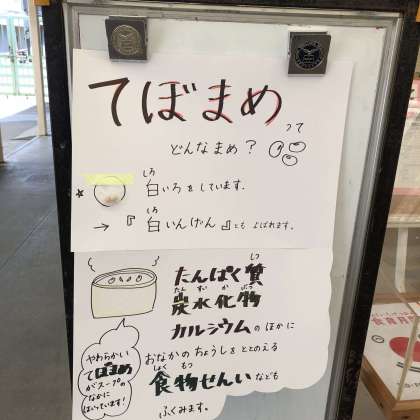 てぼまめ
って
どんなまめ？
しろ
白いろをしています。
しろ
→『白いんげん』ともよばれます。
しつ
たんぱく質
たんすいかぶつ
炭水化物
カルシウムのほかに
おなかのちょうしをととのえる
しょくもつ
食物せんいなども
ふくみます。
やわらかい
てぼまめ
がスープの
なかに
はいっています！